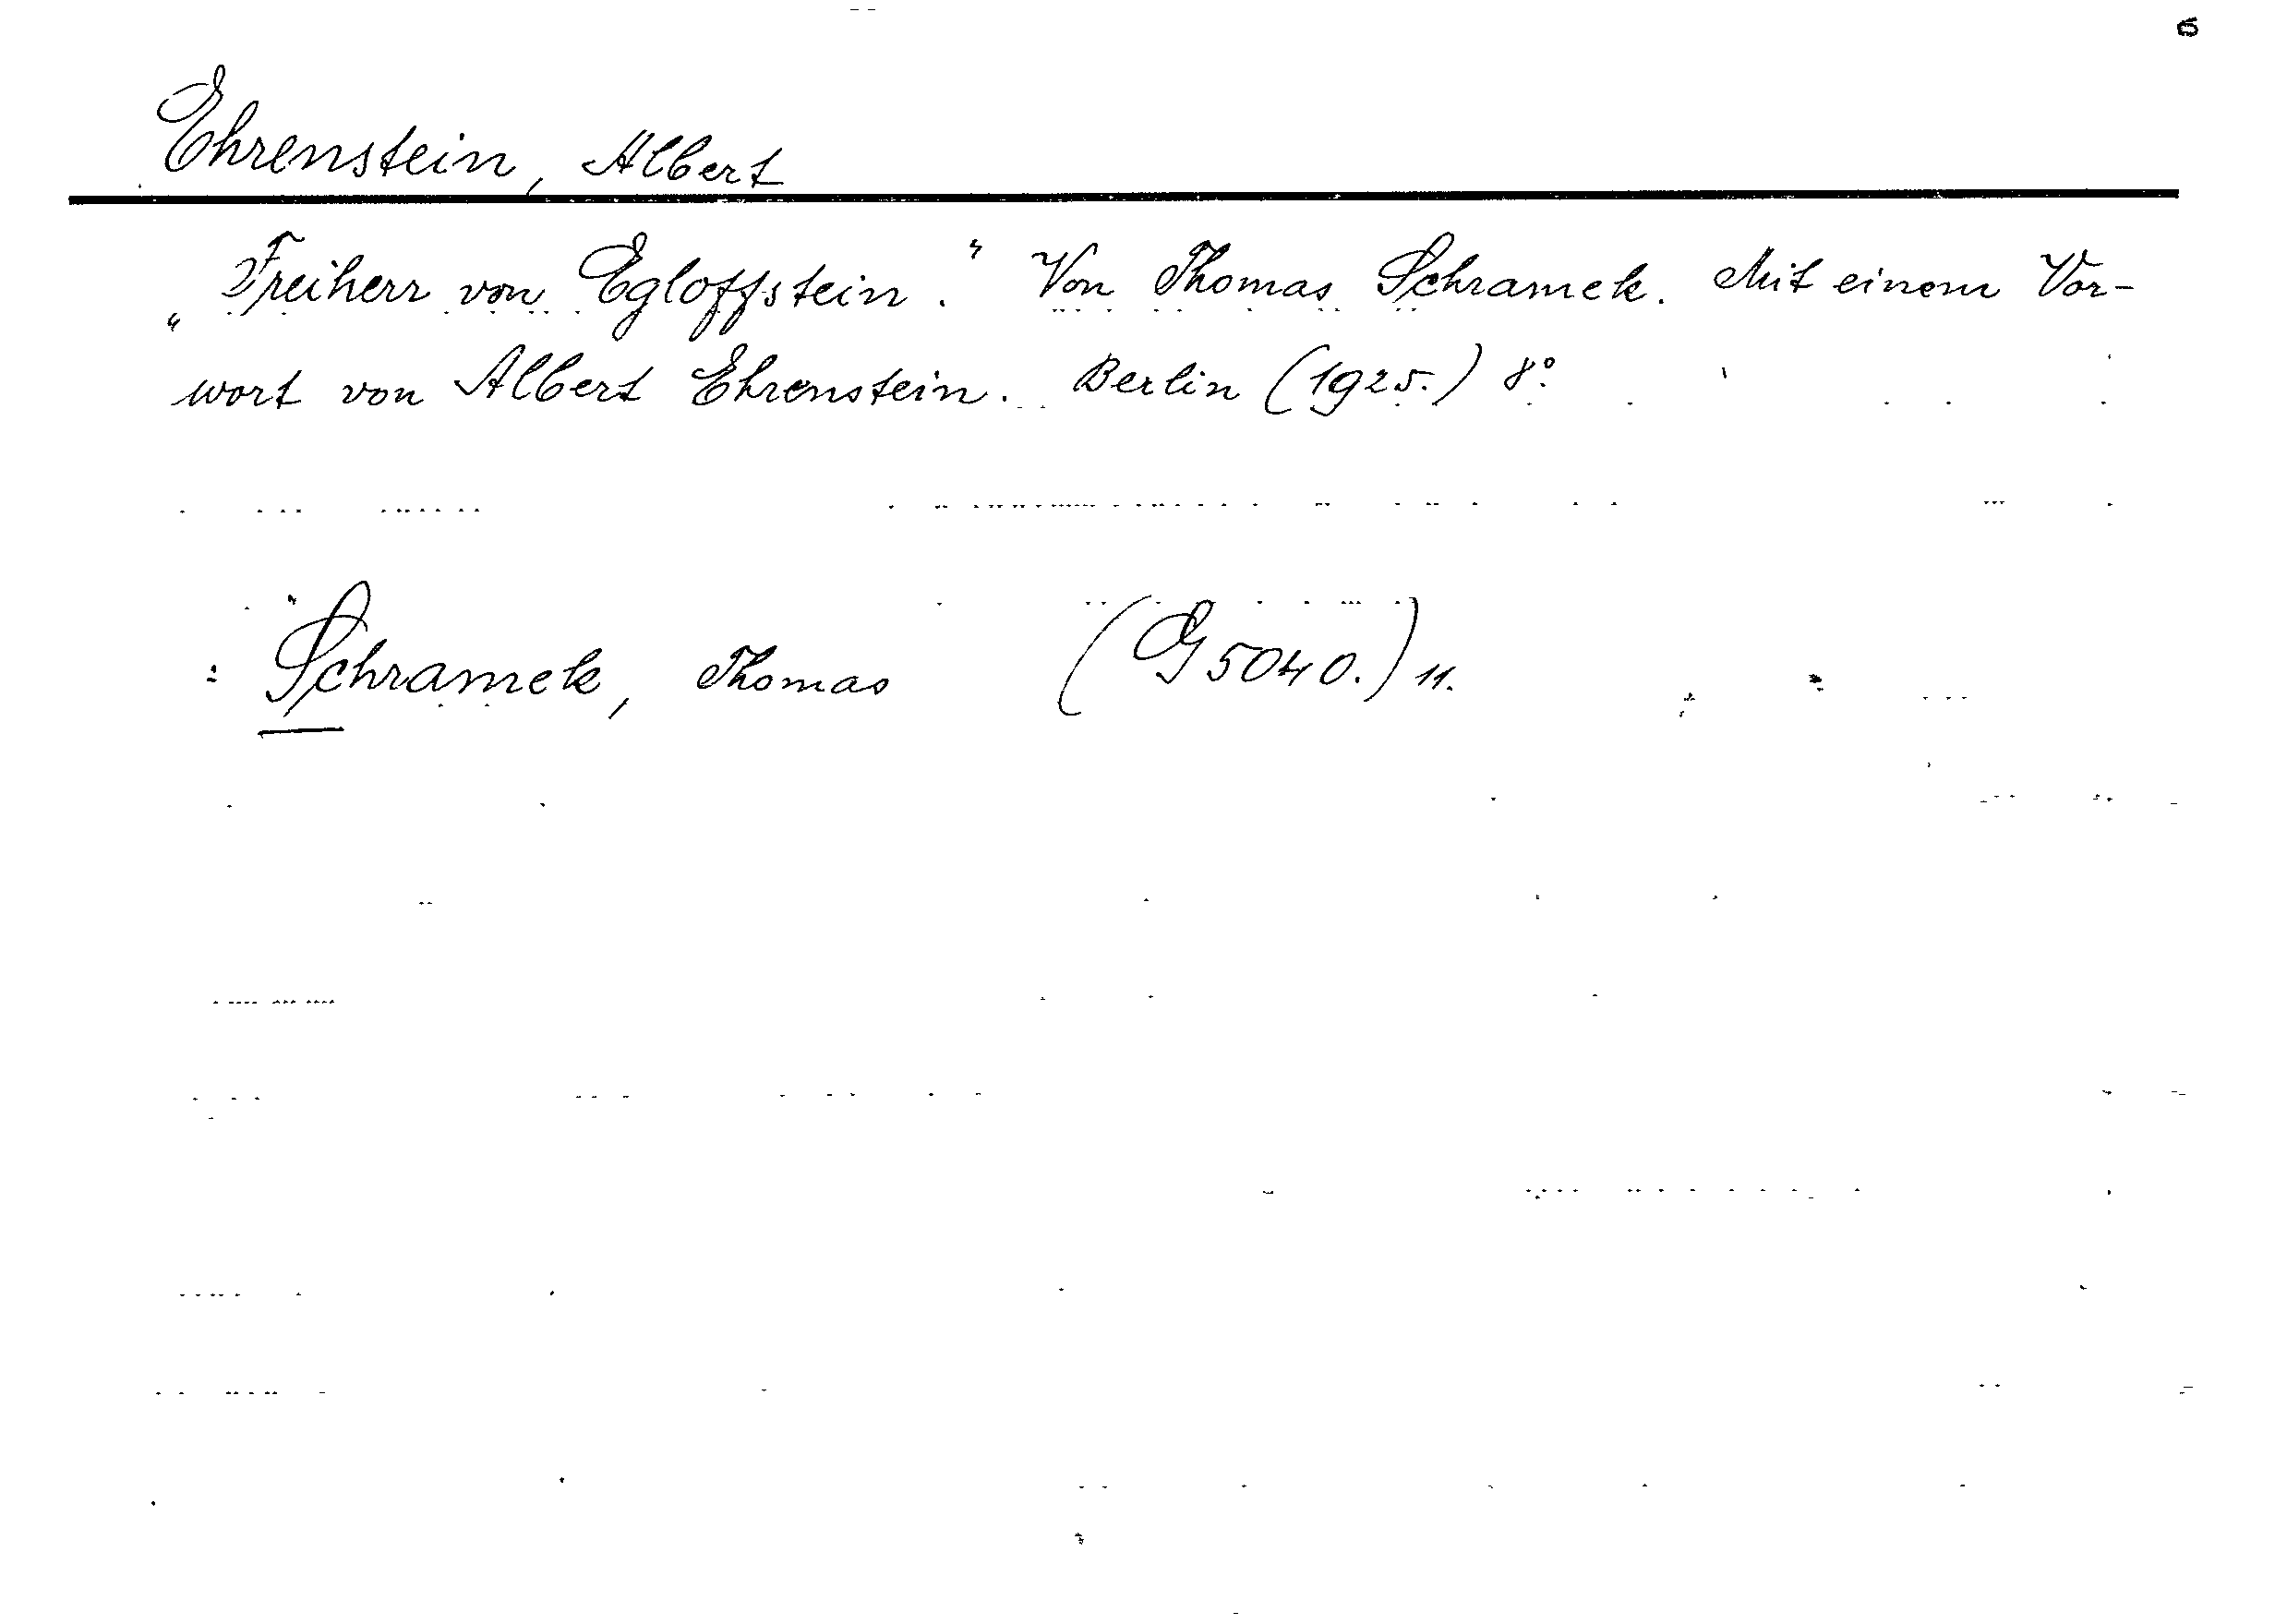 Ehrenstein, Albert
„Freiherr von Egloffstein.“ Von Thomas Schramek. Mit einem Vor-
wort von Albert Ehrenstein. Berlin (1925.) 8°.
: Schramek, Thomas (G 5040.) 11.